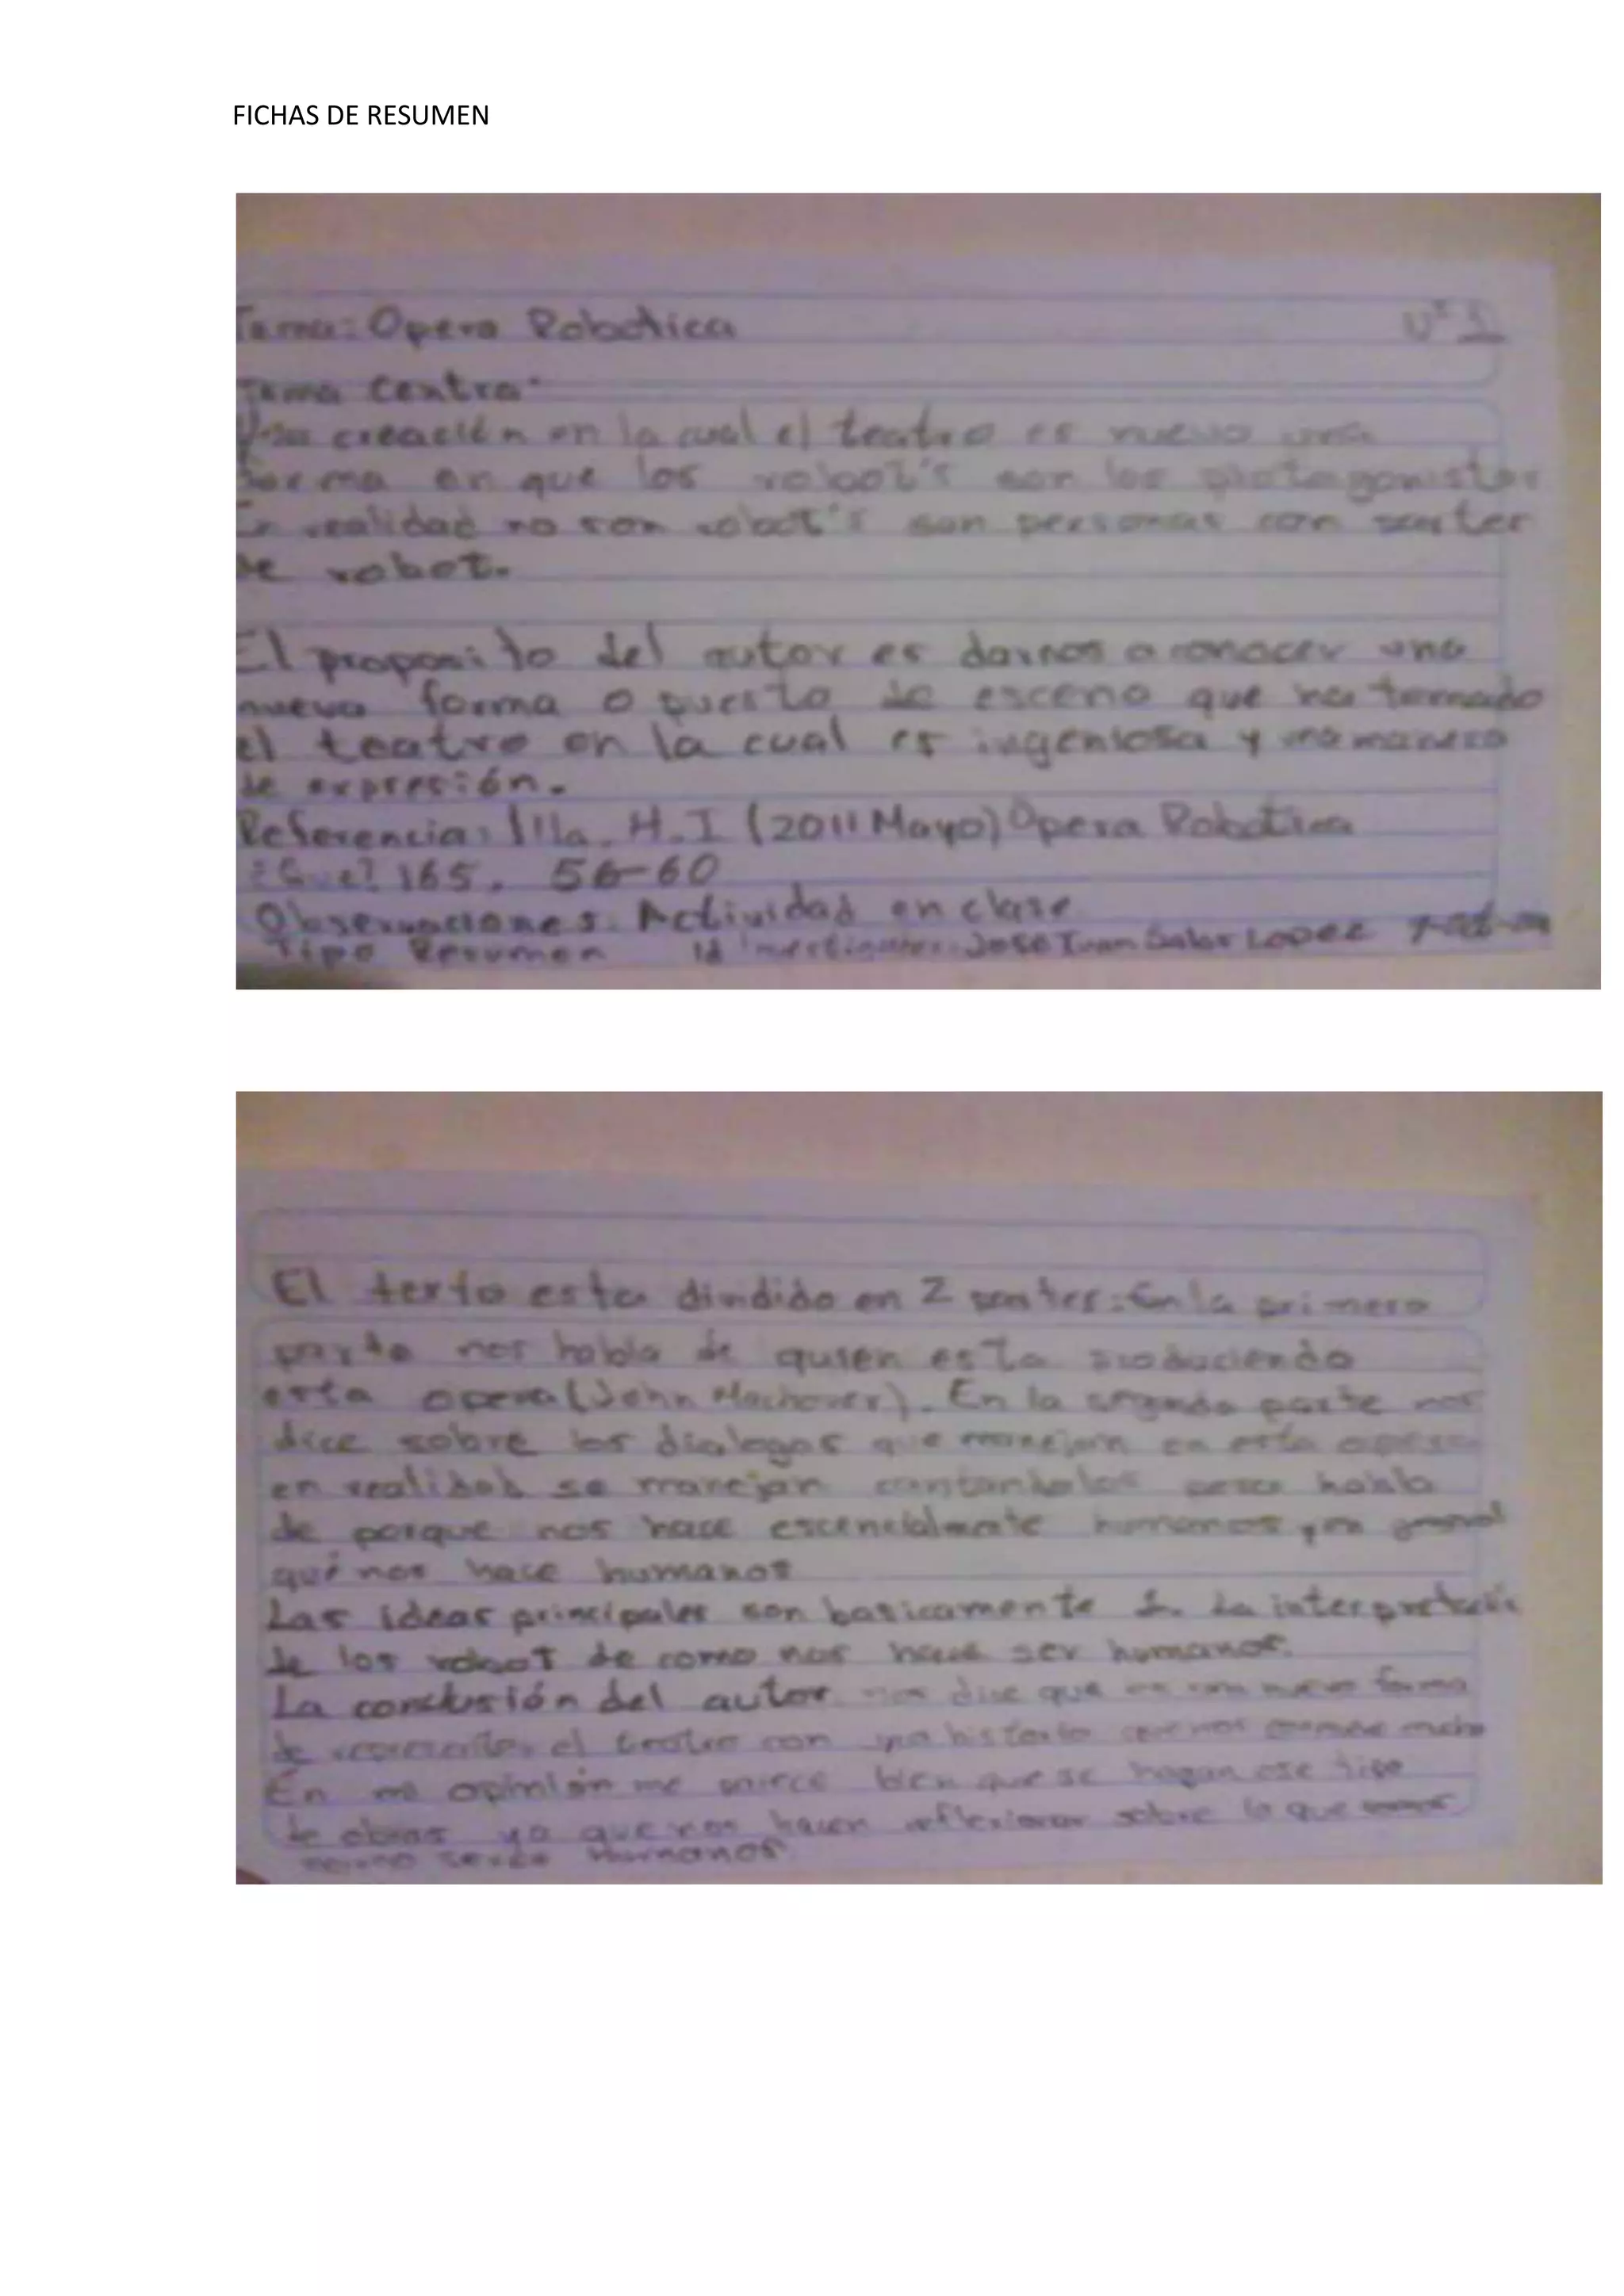 FICHAS DE RESUMEN
Tema: Opera Robotica
Tema Centra
creación en la cual el teatro es nuevo una
forma en que los robot's son los protagonistas
En realidad no son robot's son personas con
de robot.
El proposito del autor es darnos a conocer una
nueva forma o puesta de escena que ha tomado
el teatro en la cual es ingeniosa y manera
de expresión.
Referencia: H.I (2011 Mayo) Opera Robotica
165, 56-60
Observaciones: Actividad en clase
Tipo Resumen Id Jose Ivan Lopez
El texto esta dividido en 2 partes: En la primera
parte nos habla de quien esta produciendo
esta opera (John Machover). En la segunda parte nos
dice sobre los dialogos que manejan en esta opera
en realidad se manejan habla
de porque nos hace escencialmente humanos
qué nos hace humanos
Las ideas principales son basicamente 1. La interpretación
de los robot de como nos hace ser humanos.
La conclusión del autor nos dice que forma
de el teatro con historia
En mi opinión me parece bien que se hagan ese tipo
de obras ya que nos hacen reflexionar sobre lo que
humanos